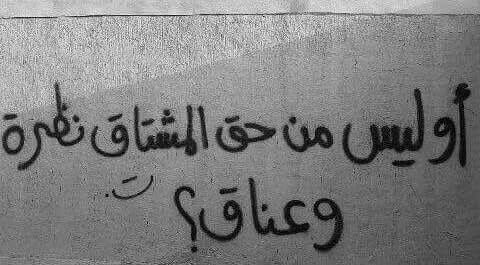 أوليس من حق المشتاق نظرة
وعناق؟
ت.